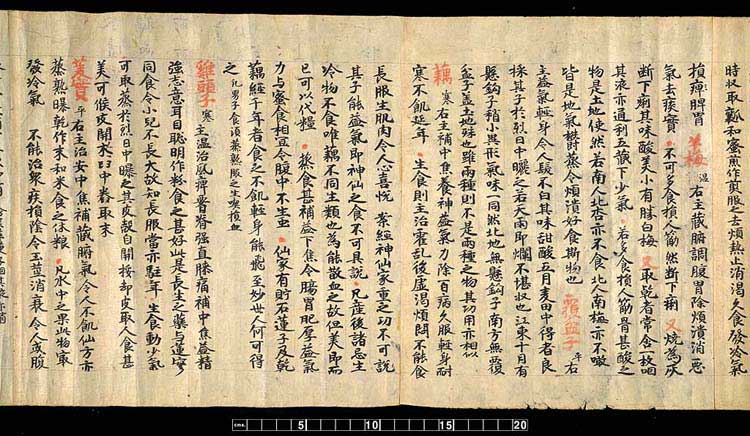 時收取瓤和蜜煎作煎服之去煩熱止消渴久食發冷氣
損痺脾胃 羊梅 温 右主藏腑調腹胃除煩潰消惡
氣去痰實・不可多食損人筋然断下痢・又燒為灰
断下痢其味酸美小有勝白梅・又取乾者常含一枚咽
其液亦通利五藏下少氣・若多食損人筋骨甚酸之
物是土地使然若南人北杏亦不食北人南梅亦不噉
皆是地氣欝蒸令煩潰好食斯物也 覆盆子 平右
主益氣輕身令人髮不白其味甜酸五月麦田中得者良
採其子於烈日中曬之若天雨即爛不堪収也江東十月有
懸鈎子稍小異形氣味一同然北地無懸鈎子南方無覆
盆子盖土地殊也雖兩種則不是兩種之物其功用亦相似
藕 寒 右主補中焦養神益氣力除百病久服輕身耐
寒不飢延年・生食則主治霍乱後虚渴煩悶不能食
長服生肌肉令人心喜悦・案經神仙家重之功不可說
其子能益氣即神仙之食不可具說・凡産後諸忌生
冷物不食唯藕不同生類也為能散血之故但美即而
已可以代粮・蒸食甚補益下焦令腸胃肥厚益氣
力与蜜食相宜令腹中不生虫・仙家有貯石蓮子及乾
藕經千年者食之不飢輕身能飛至妙世人何可得
之 凡男子食須蒸熟服之生喫損血
雞頭子 寒 主温治風痺脊強直膝痛補中焦益精
強志意耳目聡明作粉食之甚好此是長生之藥与蓮實
同食令小兒不長大故知長服當亦駐年・生食動少氣
可取蒸於烈日中曝之其皮殼自開挼却皮取人食甚
美可候皮開於臼中舂取末
菱實 平右主治安中焦補藏腑氣令人不飢仙方亦
蒸熟曝乾作末和米食之休粮・凡水中之果此物㝡
發冷氣 不能治衆疾損陰令玉莖消衰令人或腹
cms.
5
10
15
20